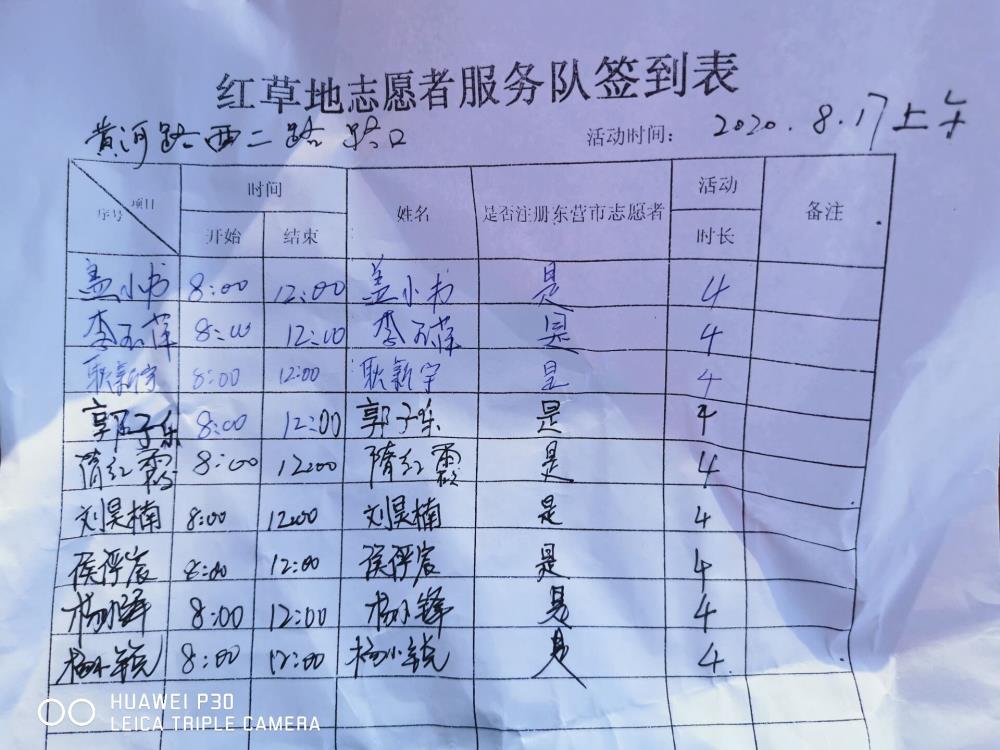 红草地志愿者服务队签到表
黄河路西二路路口 活动时间: 2020.8.17上午
项目 序号 时间 姓名 是否注册东营市志愿者 活动 备注
开始 结束 时长
盖小书 8:00 12:00 盖小书 是 4
李玉萍 8:00 12:00 李玉萍 是 4
耿新宇 8:00 12:00 耿新宇 是 4
郭子乐 8:00 12:00 郭子乐 是 4
隋红霞 8:00 12:00 隋红霞 是 4
刘昊楠 8:00 12:00 刘昊楠 是 4
8:00 12:00 是 4
杨小锋 8:00 12:00 杨小锋 是 4
杨小锐 8:00 12:00 杨小锐 是 4
HUAWEI P30
LEICA TRIPLE CAMERA